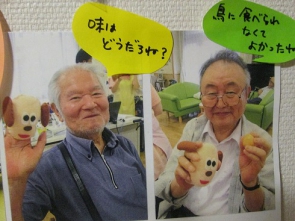 味は
どうだろね?
鳥に食べられ
なくて
よかったね